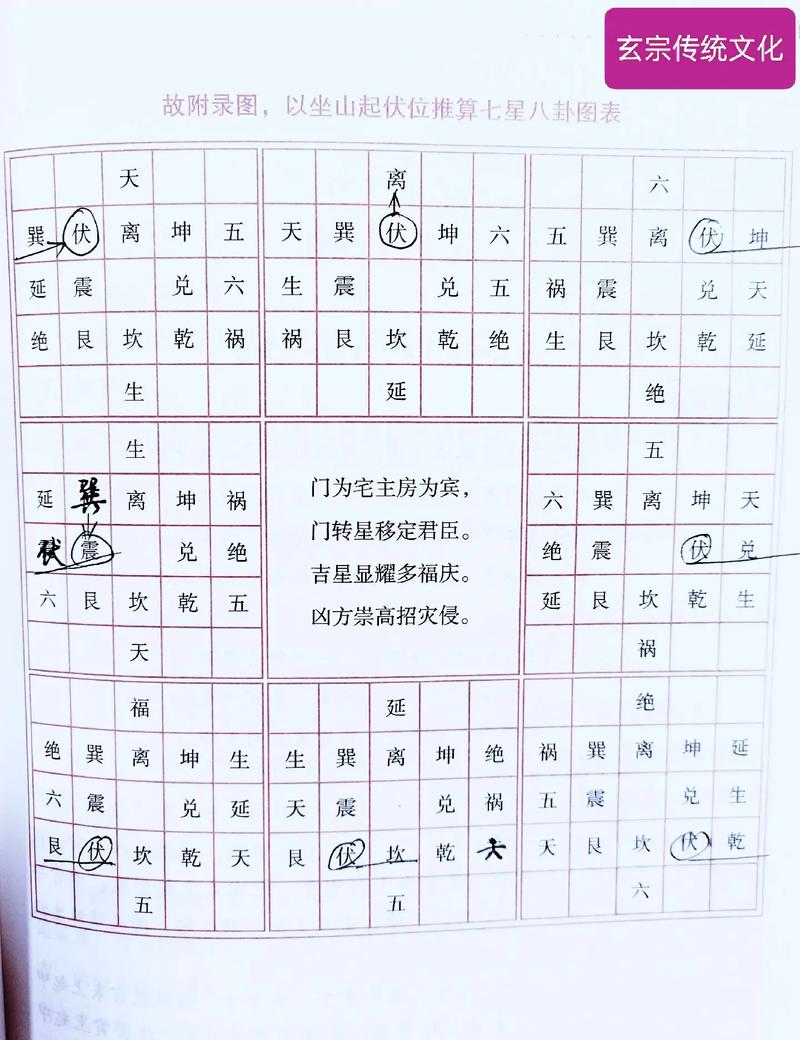 玄宗传统文化
故附录图，以坐山起伏位推算七星八卦图表
天
巽 伏 离 坤 五
延 震 兑 六
绝 艮 坎 乾 祸
生
离
天 巽 伏 坤 六
生 震 兑 五
祸 艮 坎 乾 绝
延
六
五 巽 离 伏 坤
祸 震 兑 天
生 艮 坎 乾 延
绝
生
延 巽 离 坤 祸
伏 震 兑 绝
六 艮 坎 乾 五
天
门为宅主房为宾，
门转星移定君臣。
吉星显耀多福庆。
凶方崇高招灾侵。
五
六 巽 离 坤 天
绝 震 伏 兑
延 艮 坎 乾 生
祸
福
绝 巽 离 坤 生
六 震 兑 延
艮 伏 坎 乾 天
五
延
生 巽 离 坤 绝
天 震 兑 祸
艮 伏 坎 乾 六
五
绝
祸 巽 离 坤 延
五 震 兑 生
天 艮 坎 伏 乾
六